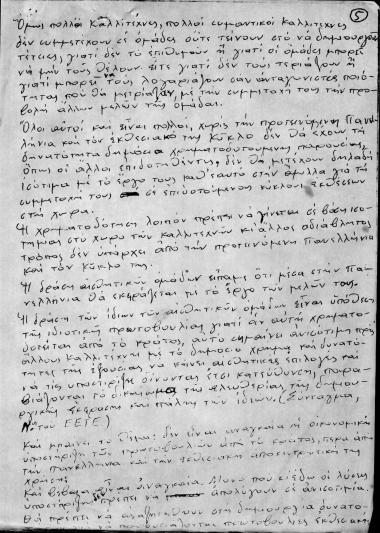 5
Όμως πολλοί καλλιτέχνες, πολλοί σημαντικοί καλλιτέχνες
δεν συμμετέχουν σε ομάδες ούτε τείνουν στο να δημιουργούν
τέτοιες, γιατί δεν το επιθυμούν ή γιατί οι ομάδες μπορεί
να μην τους θέλουν είτε γιατί δεν τους ταιριάζουν ή
γιατί μπορεί να τους λογαριάζουν σαν ανταγωνιστές ποιό-
τητας που θα μετριάζαν με την συμμετοχή τους την προ-
βολή άλλων μελών της ομάδας.
Όλοι αυτοί και είναι πολλοί, χωρίς την προτεινόμενη Πανελ-
λήνια και τον εκθεσιακό της κύκλο δεν θα έχουν τη
δυνατότητα δημόσια χρηματοδοτούμενης παρουσίας,
όπως οι άλλοι επιδοτηθέντες, δεν θα μετέχουν δηλαδή
ισότιμα με το έργο τους καθ' εαυτό στην άμιλλα για τη
συμμετοχή τους σε επιδοτούμενους κύκλους εκθέσεων
στη χώρα.
Η χρηματοδότηση λοιπόν πρέπει να γίνεται σε βάση ισο-
τιμίας στο χώρο των καλλιτεχνών κι άλλος αδιάβλητος
τρόπος δεν υπάρχει από την προτεινόμενη Πανελλήνια
και τον κύκλο της.
Η δράση αισθητικών ομάδων είπαμε ότι μέσα στην Πα-
νελλήνια θα εκφράζεται με το έργο των μελών τους.
Η δράση των ίδιων των αισθητικών ομάδων είναι υπόθεση
της ιδιωτικής πρωτοβουλίας γιατί αν αυτή χρηματο-
δοτείται από το κράτος, αυτό σημαίνει ανισότιμη πρός
άλλους καλλιτέχνες με το δημόσιο χρήμα και δυνατό-
τητες της εξουσίας να κάνει αισθητικές επιλογές και
να τις υποστηρίξει δίνοντας έτσι κατεύθυνση, παρα-
βιάζοντας το δικαίωμα της ελευθερίας της δημιου-
ργικής έκφρασης και πάλης των ιδεών. (Σύνταγμα,
Ν. του ΕΕΤΕ)
Και μπαίνει το θέμα: δεν είναι αναγκαία η οικονομική
υποστήριξη των πρωτοβουλιών από το κράτος, πέρα από
την πανελλήνια και την εκθεσιακή αποκέντρωση της
χρήσης;
Και βέβαια είναι αναγκαία. Μόνο που εδώ οι λύσεις
υποστήριξης πρέπει να αποφύγουν σε ανισοτιμία.
Θα πρέπει να αναζητηθούν στη δημιουργία δυνατο-
πρωτοβουλίες